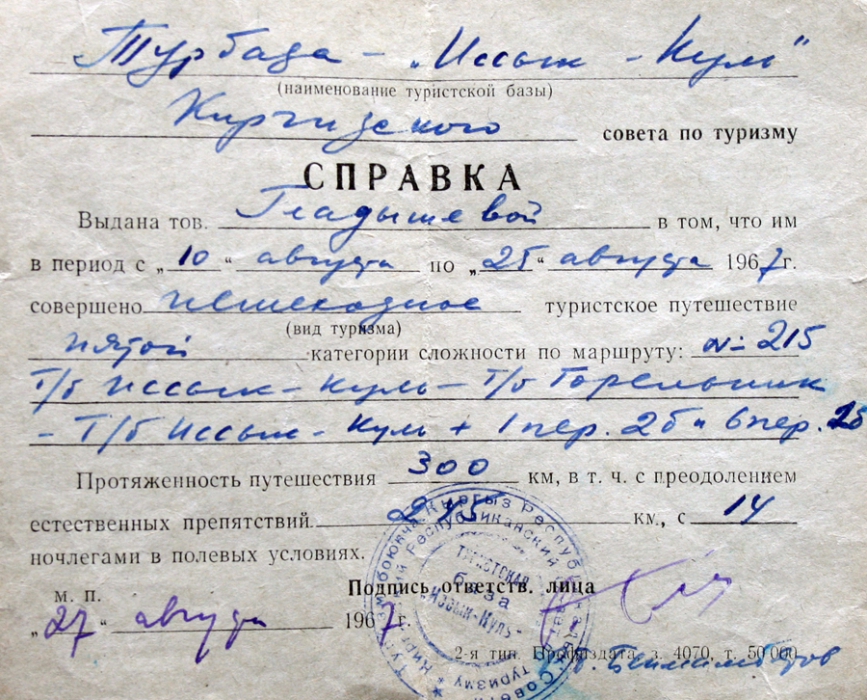 Турбаза – „Иссык-Куль"
(наименование туристской базы)
Киргизского совета по туризму
СПРАВКА
Выдана тов. Гладышевой в том, что им
в период с „10" августа по „25" августа 1967г.
совершено пешеходное туристское путешествие
(вид туризма)
пятой категории сложности по маршруту: №215
Т/б Иссык-Куль – Т/б Горельник
– Т/б Иссык-Куль + 1 пер. 2б и 6 пер.
Протяженность путешествия 300 км, в т. ч. с преодолением
естественных препятствий 245 км, с 14
ночлегами в полевых условиях.
м. п. Подпись ответств. лица
„27" августа 1967г.
2-я тип. Профиздата, з. 4070, т. 50 000
ТУРИСТСКАЯ
база
„Иссык-Куль"